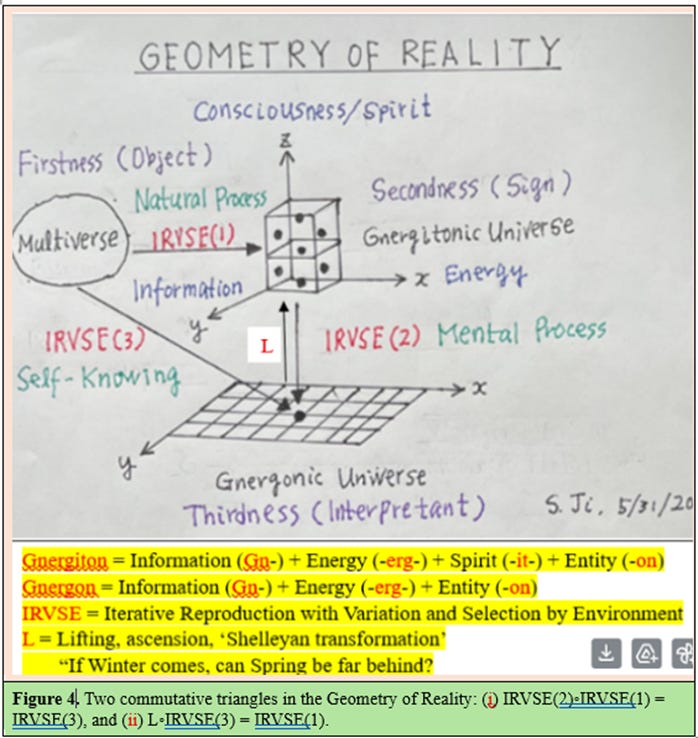 GEOMETRY OF REALITY
Consciousness/Spirit
Firstness (Object)
z
Natural Process
Secondness (Sign)
Multiverse
IRVSE(1)
Gnergitonic Universe
Information
x Energy
y
IRVSE(3)
L
IRVSE(2) Mental Process
Self-Knowing
x
y
Gnergonic Universe
Thirdness (Interpretant)
S. Ji, 5/31/20
Gnergiton = Information (Gn-) + Energy (-erg-) + Spirit (-it-) + Entity (-on)
Gnergon = Information (Gn-) + Energy (-erg-) + Entity (-on)
IRVSE = Iterative Reproduction with Variation and Selection by Environment
L = Lifting, ascension, ‘Shelleyan transformation’
“If Winter comes, can Spring be far behind?
Figure 4. Two commutative triangles in the Geometry of Reality: (i) IRVSE(2)∘IRVSE(1) =
IRVSE(3), and (ii) L∘IRVSE(3) = IRVSE(1).